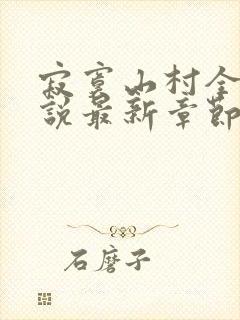 寂寞山村全
說最新章節
石磨子